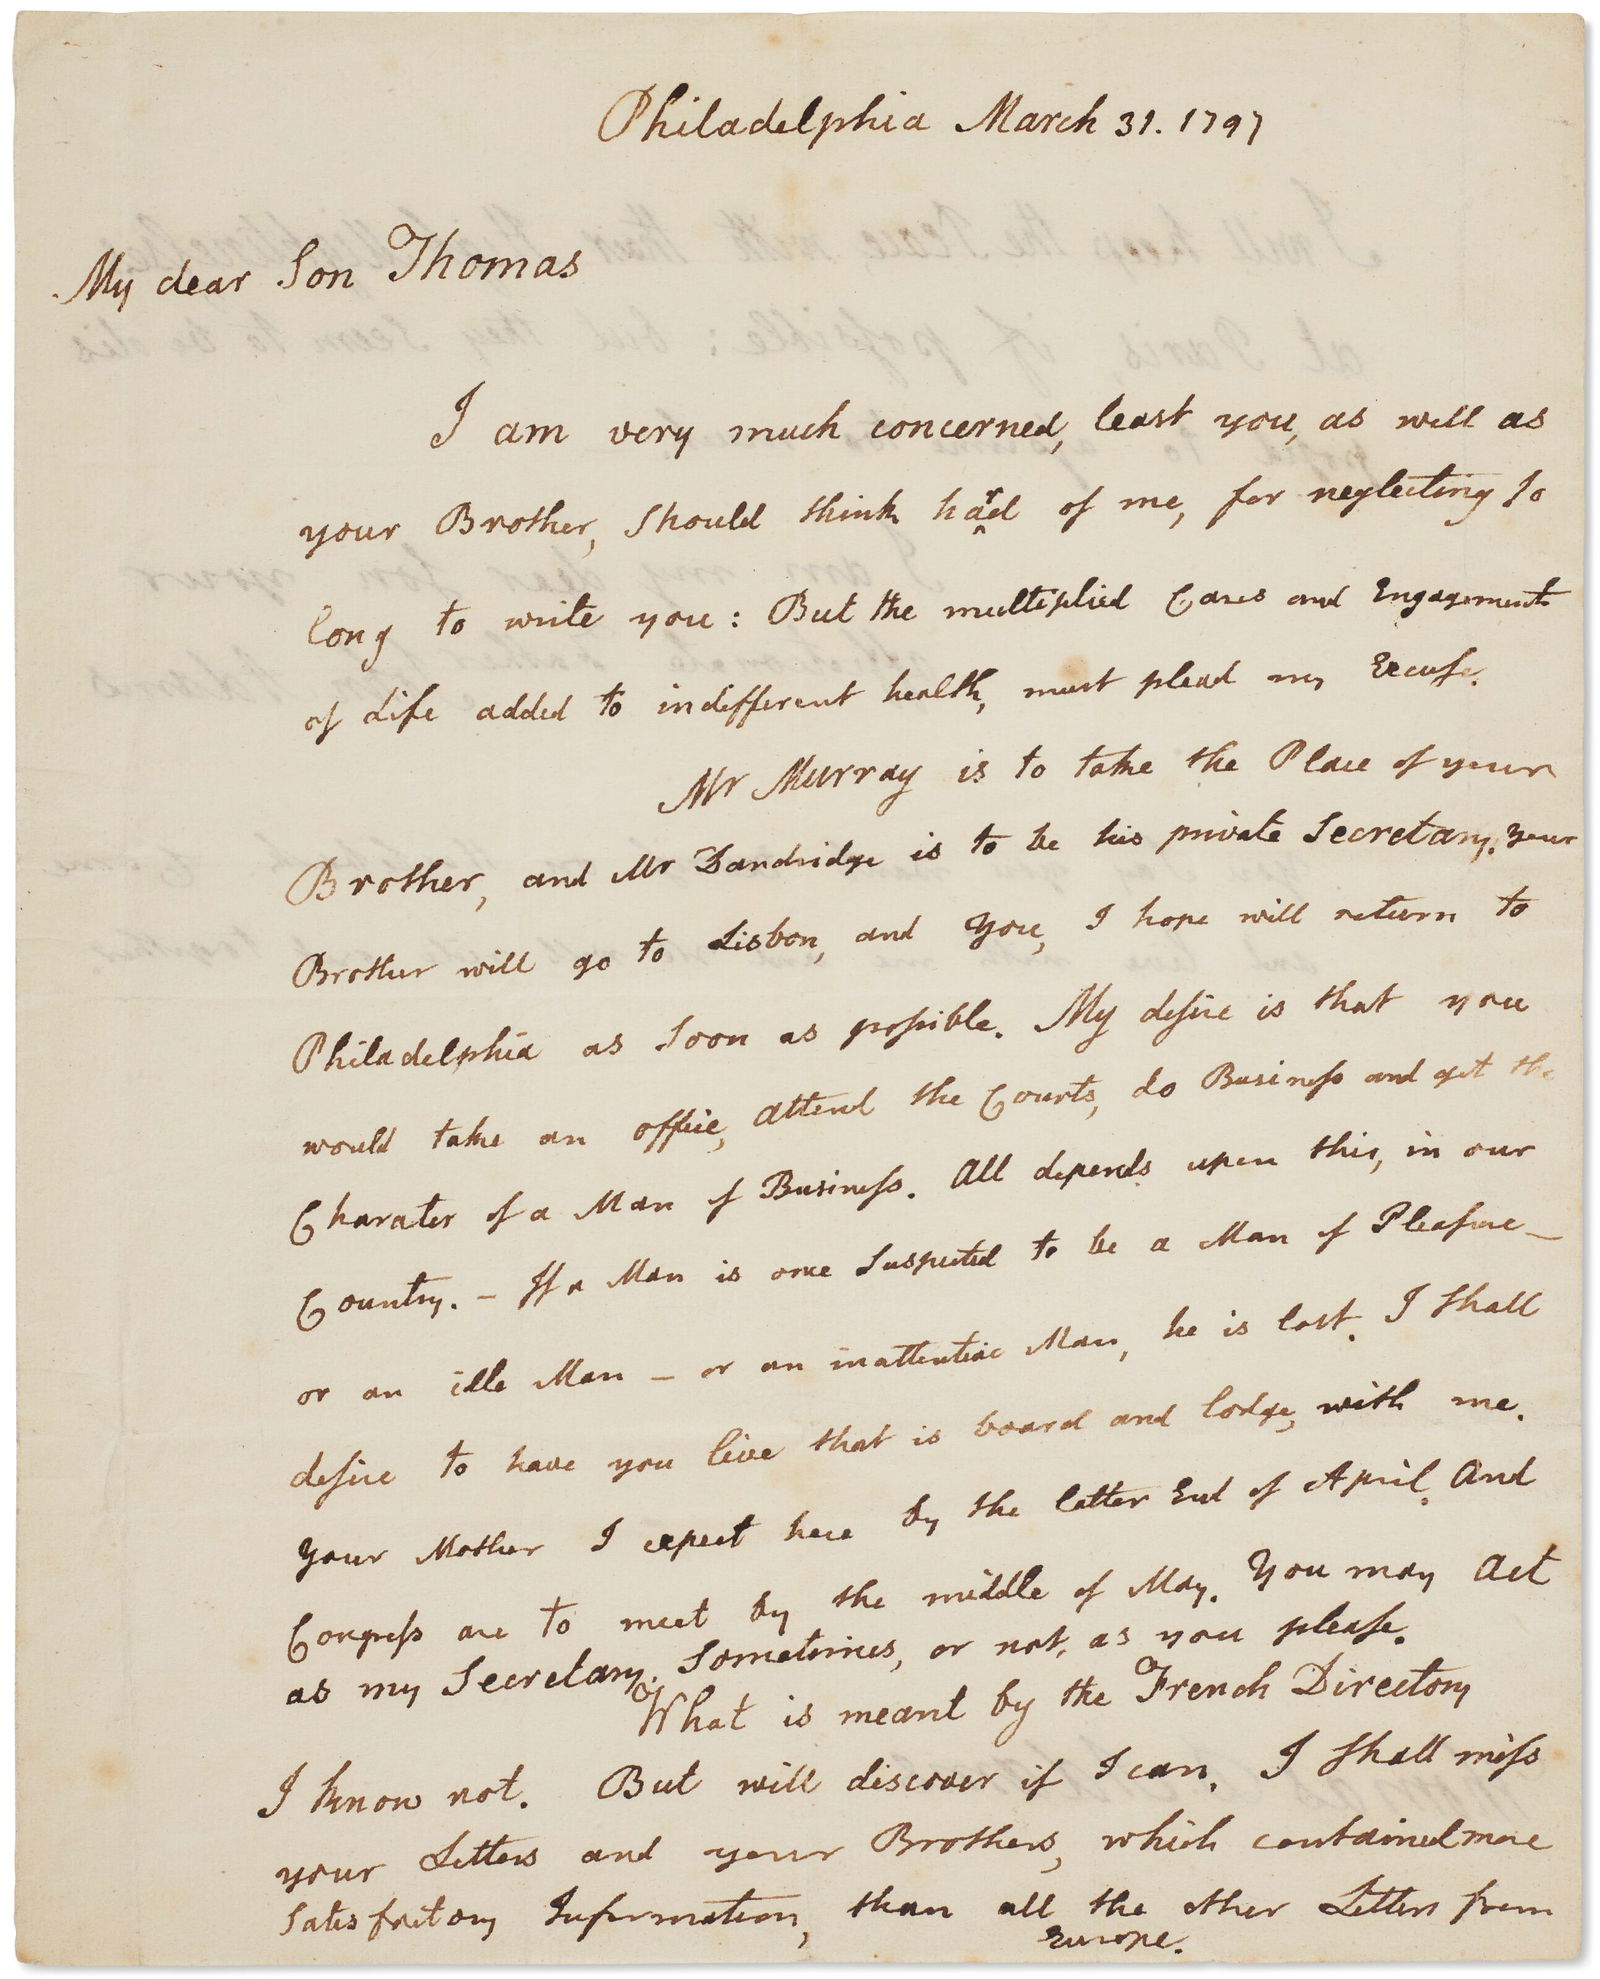 Philadelphia March 31. 1797
My dear Son Thomas
I am very much concerned, least you, as well as
your Brother, should think hard of me, for neglecting so
long to write you: But the multiplied Cares and Engagements
of Life added to indifferent health, must plead my Excuse.
Mr Murray is to take the Place of your
Brother, and Mr Dandridge is to be his private Secretary. Your
Brother will go to Lisbon, and You, I hope will return to
Philadelphia as soon as possible. My desire is that you
would take an office, attend the Courts, do Business and get the
Charater of a Man of Business. All depends upon this, in our
Country. – If a Man is once suspected to be a Man of Pleasure –
or an idle Man – or an inattentive Man, he is lost. I shall
desire to have you live that is board and lodge, with me.
Your Mother I expect here by the latter End of April. And
Congress are to meet by the middle of May. You may Act
as my Secretary, Sometimes, or not, as you please.
What is meant by the French Directory
I know not. But will discover if I can. I shall miss
your Letters and your Brothers, which contained more
satisfactory Information, than all the other Letters from
Europe.